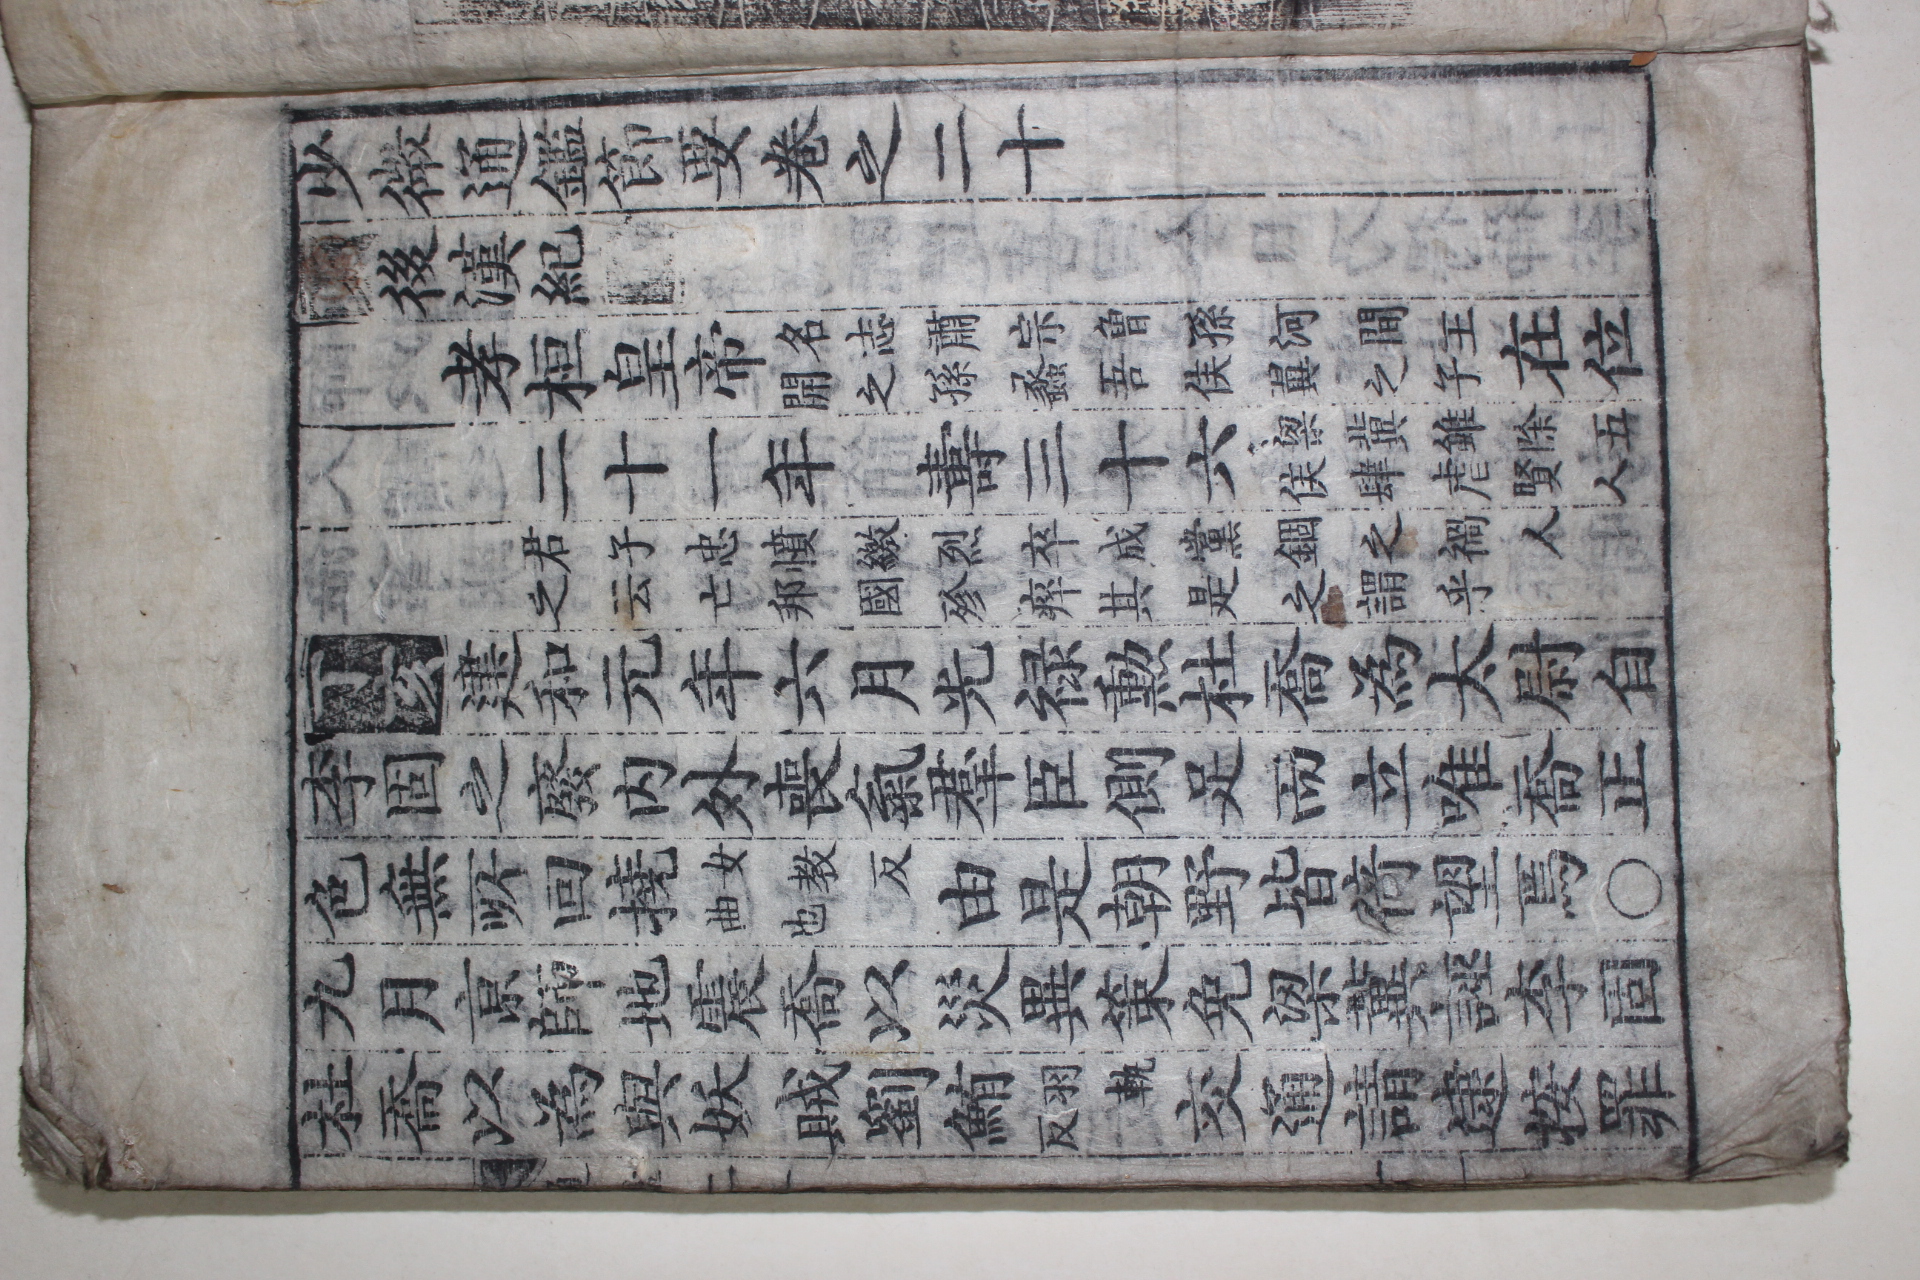 少微通鑑節要卷之二十
後漢紀
孝桓皇帝名志肅宗曾孫河間王開之孫蠡吾侯翼之子在位
二十一年壽三十六梁冀雖除五侯肆虐賢人
君子忠憤繳烈卒成黨錮之禍人之云亡邦國殄瘁其是之謂乎
丁亥建和元年六月光禄勳杜喬為太尉自
李固之廢内外喪氣羣臣側足而立唯喬正
色無所回撓女教反曲也由是朝野皆倚望焉○
九月京師地震喬以災異策免梁冀誣李固
杜喬以為與妖賊劉鮪羽軌反交通請逮按罪